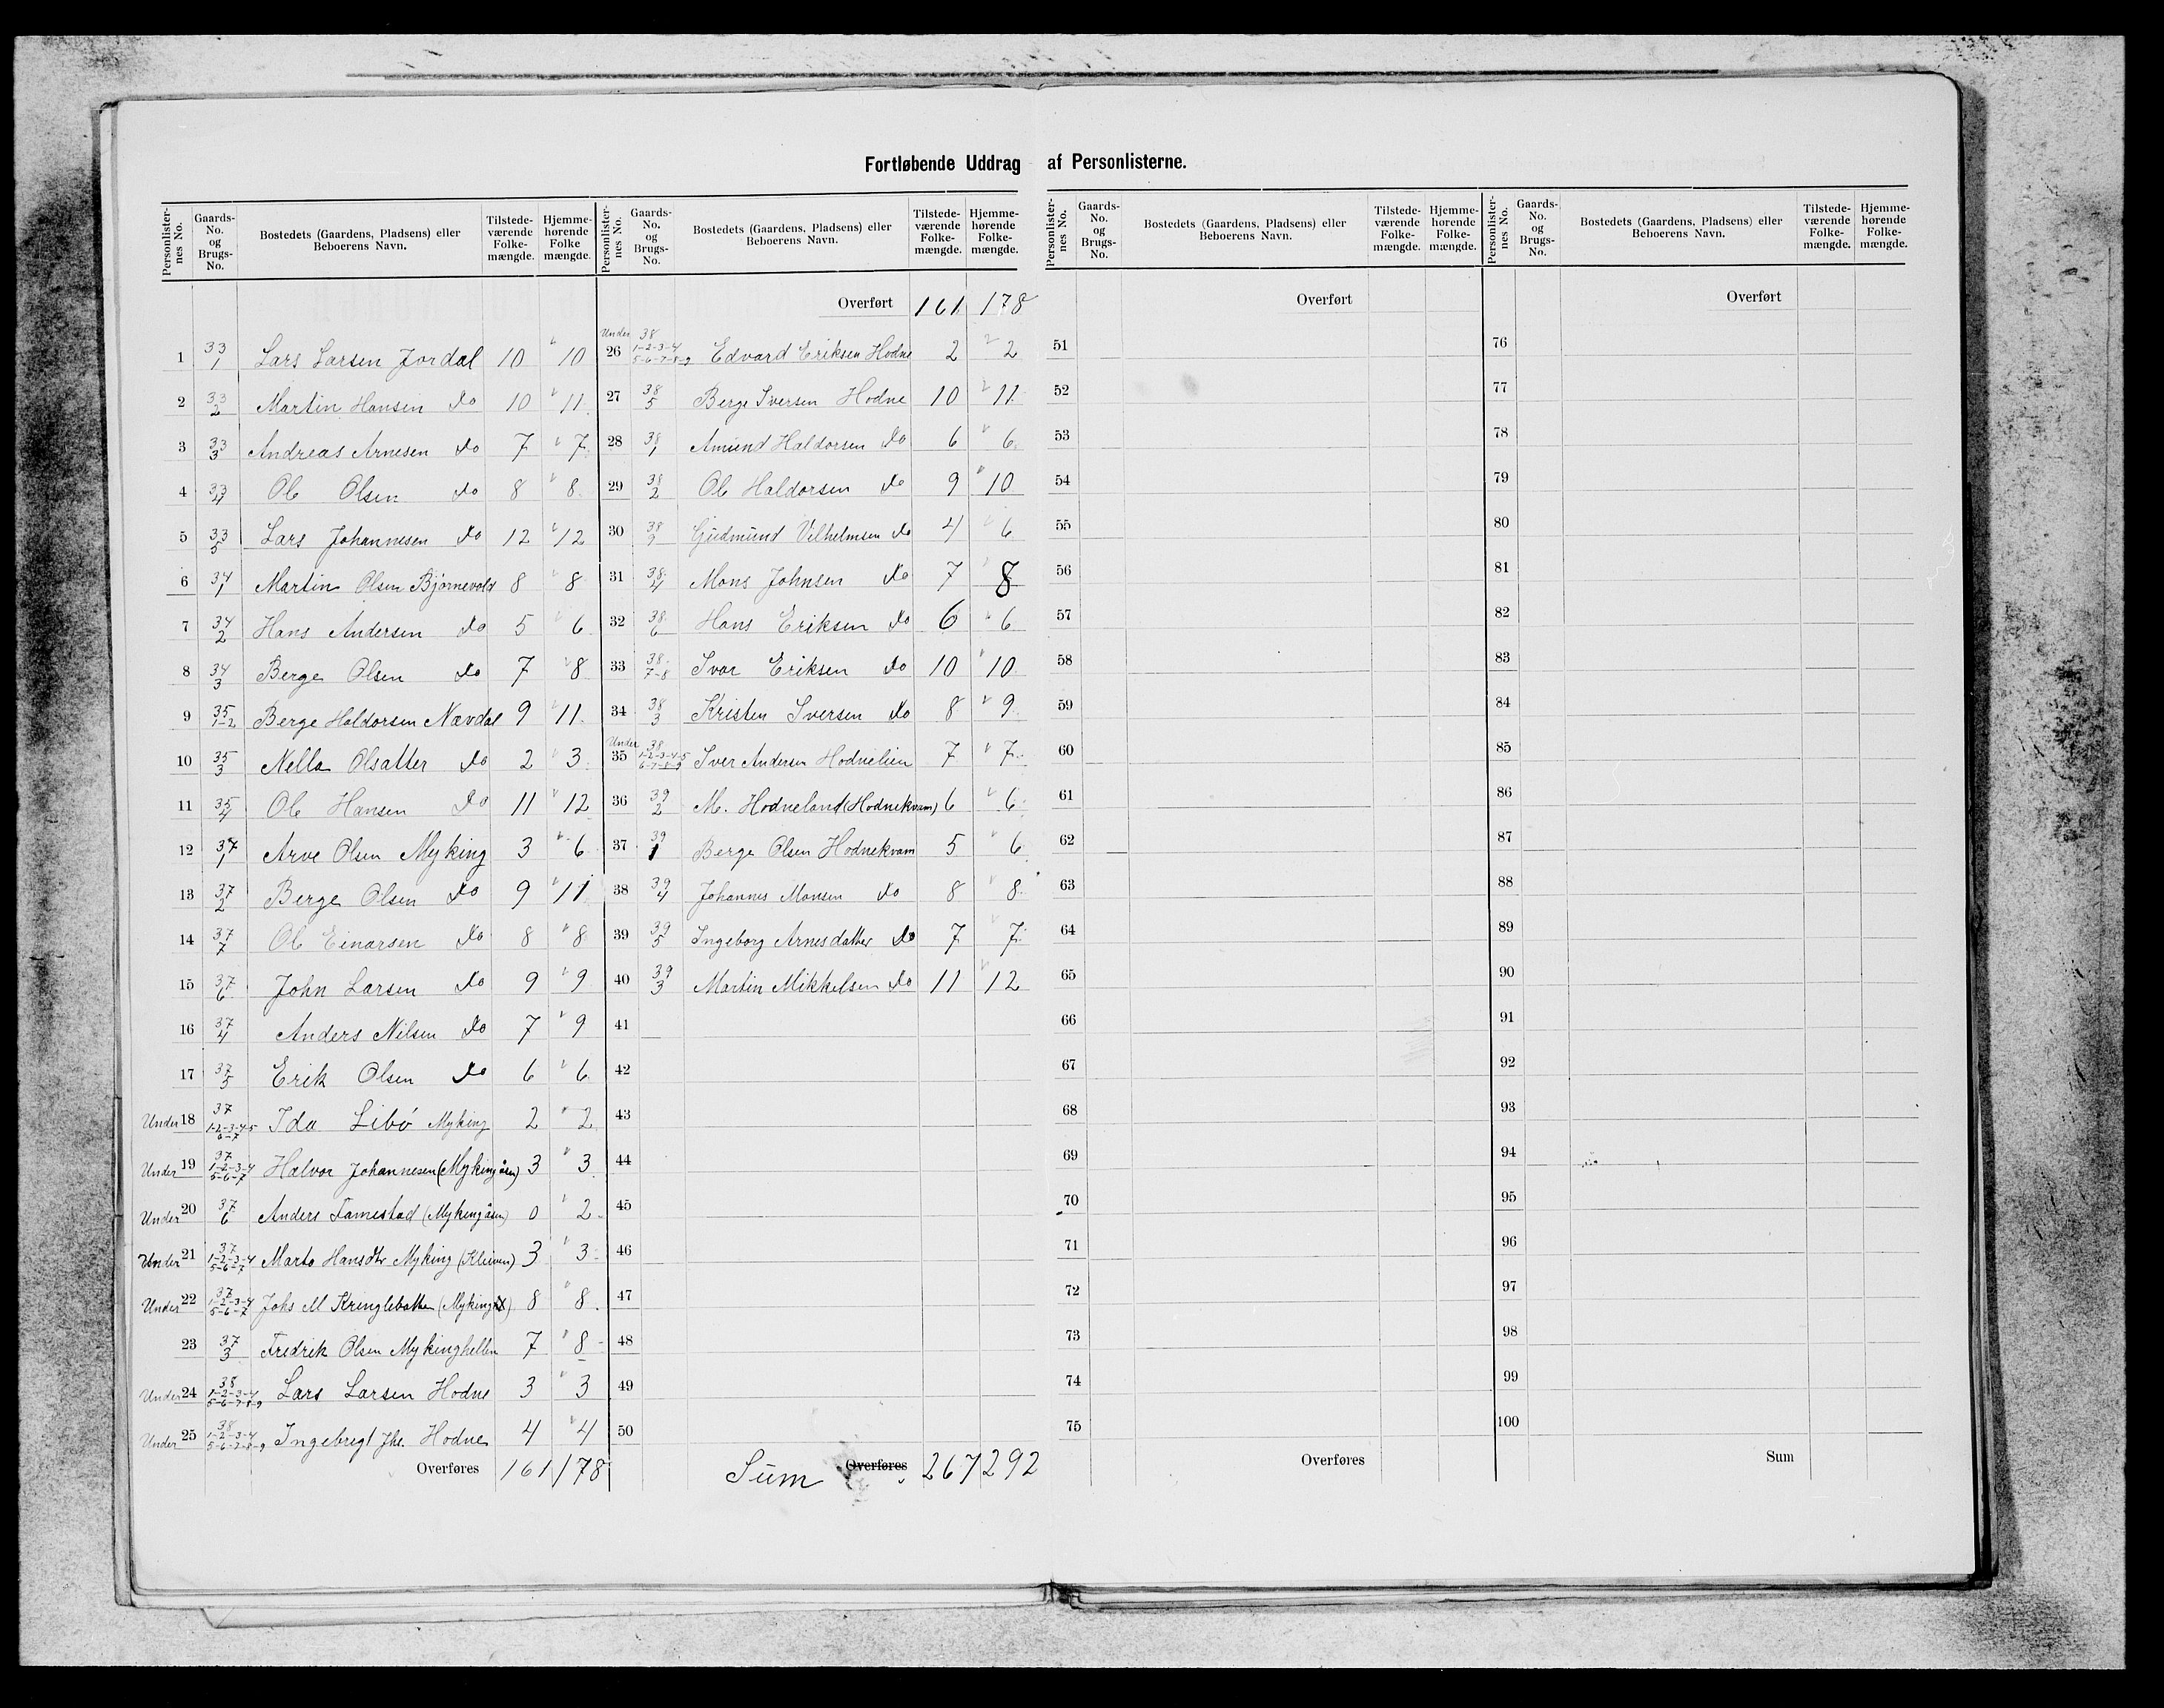 Fortløbende Uddrag af Personlisterne.
Personlisternes No. Gaards-No. og Brugs-No. Bostedets (Gaardens, Pladsens) eller Beboerens Navn. Tilstedeværende Folkemængde. Hjemmehørende Folkemængde.
1 33/1 Lars Larsen Jordal 10 10
2 33/2 Martin Hansen do 10 11
3 33/3 Andreas Arnesen do 7 7
4 33/4 Ole Olsen do 8 8
5 33/5 Lars Johannesen do 12 12
6 34/1 Martin Olsen Bjørnevold 8 8
7 34/2 Hans Andersen do 5 6
8 34/3 Berge Olsen do 7 8
9 35/1-2 Berge Haldorsen Nævdal 9 11
10 35/3 Nella Olsatter do 2 3
11 35/4 Ole Hansen do 11 12
12 37/1 Arve Olsen Myking 3 6
13 37/2 Berge Olsen do 9 11
14 37/7 Ole Einarsen do 8 8
15 37/6 John Larsen do 9 9
16 37/4 Anders Nilsen do 7 9
17 37/5 Erik Olsen do 6 6
Under 18 37/1-2-3-4-5 6-7 Ida Libø Myking 2 2
Under 19 37/1-2-3-4 5-6-7 Halvor Johannesen (Mykingåsen) 3 3
Under 20 37/6 Anders Famestad (Mykingåsen) 0 2
Under 21 37/1-2-3-4 5-6-7 Marta Hansdtr Myking (Kleiven) 3 3
Under 22 37/1-2-3-4 5-6-7 Johs M Kringlebotten 8 8
23 37/3 Fredrik Olsen Mykinghellen 7 8
Under 24 38/1-2-3-4 5-6-7-8-9 Lars Larsen Hodne 3 3
Under 25 38/1-2-3-4 5-6-7-8-9 Ingebregt Jhs. Hodne 4 4
Overføres 161 178
Personlisternes No. Gaards-No. og Brugs-No. Bostedets (Gaardens, Pladsens) eller Beboerens Navn. Tilstedeværende Folkemængde. Hjemmehørende Folkemængde.
Overført 161 178
Under 26 38/1-2-3-4 5-6-7-8-9 Edvard Eriksen Hodne 2 2
27 38/5 Berge Iversen Hodne 10 11
28 38/1 Amund Haldorsen do 6 6
29 38/2 Ole Haldorsen do 9 10
30 38/9 Gudmund Vilhelmsen do 4 6
31 38/4 Mons Johnsen do 7 8
32 38/6 Hans Eriksen do 6 6
33 38/7-8 Ivar Eriksen do 10 10
34 38/3 Kristen Iversen do 8 9
Under 35 38/1-2-3-4-5 6-7-8-9 Iver Andersen Hodnelien 7 7
36 39/2 M. Hodneland (Hodnekvam) 6 6
37 39/1 Berge Olsen Hodnekvam 5 6
38 39/4 Johannes Monsen do 8 8
39 39/5 Ingeborg Arnesdatter do 7 7
40 39/3 Martin Mikkelsen do 11 12
41
42
43
44
45
46
47
48
49
50
Sum Overføres 267 292
Personlisternes No. Gaards-No. og Brugs-No. Bostedets (Gaardens, Pladsens) eller Beboerens Navn. Tilstedeværende Folkemængde. Hjemmehørende Folkemængde.
Overført
51
52
53
54
55
56
57
58
59
60
61
62
63
64
65
66
67
68
69
70
71
72
73
74
75
Overføres
Personlisternes No. Gaards-No. og Brugs-No. Bostedets (Gaardens, Pladsens) eller Beboerens Navn. Tilstedeværende Folkemængde. Hjemmehørende Folkemængde.
Overført
76
77
78
79
80
81
82
83
84
85
86
87
88
89
90
91
92
93
94
95
96
97
98
99
100
Sum